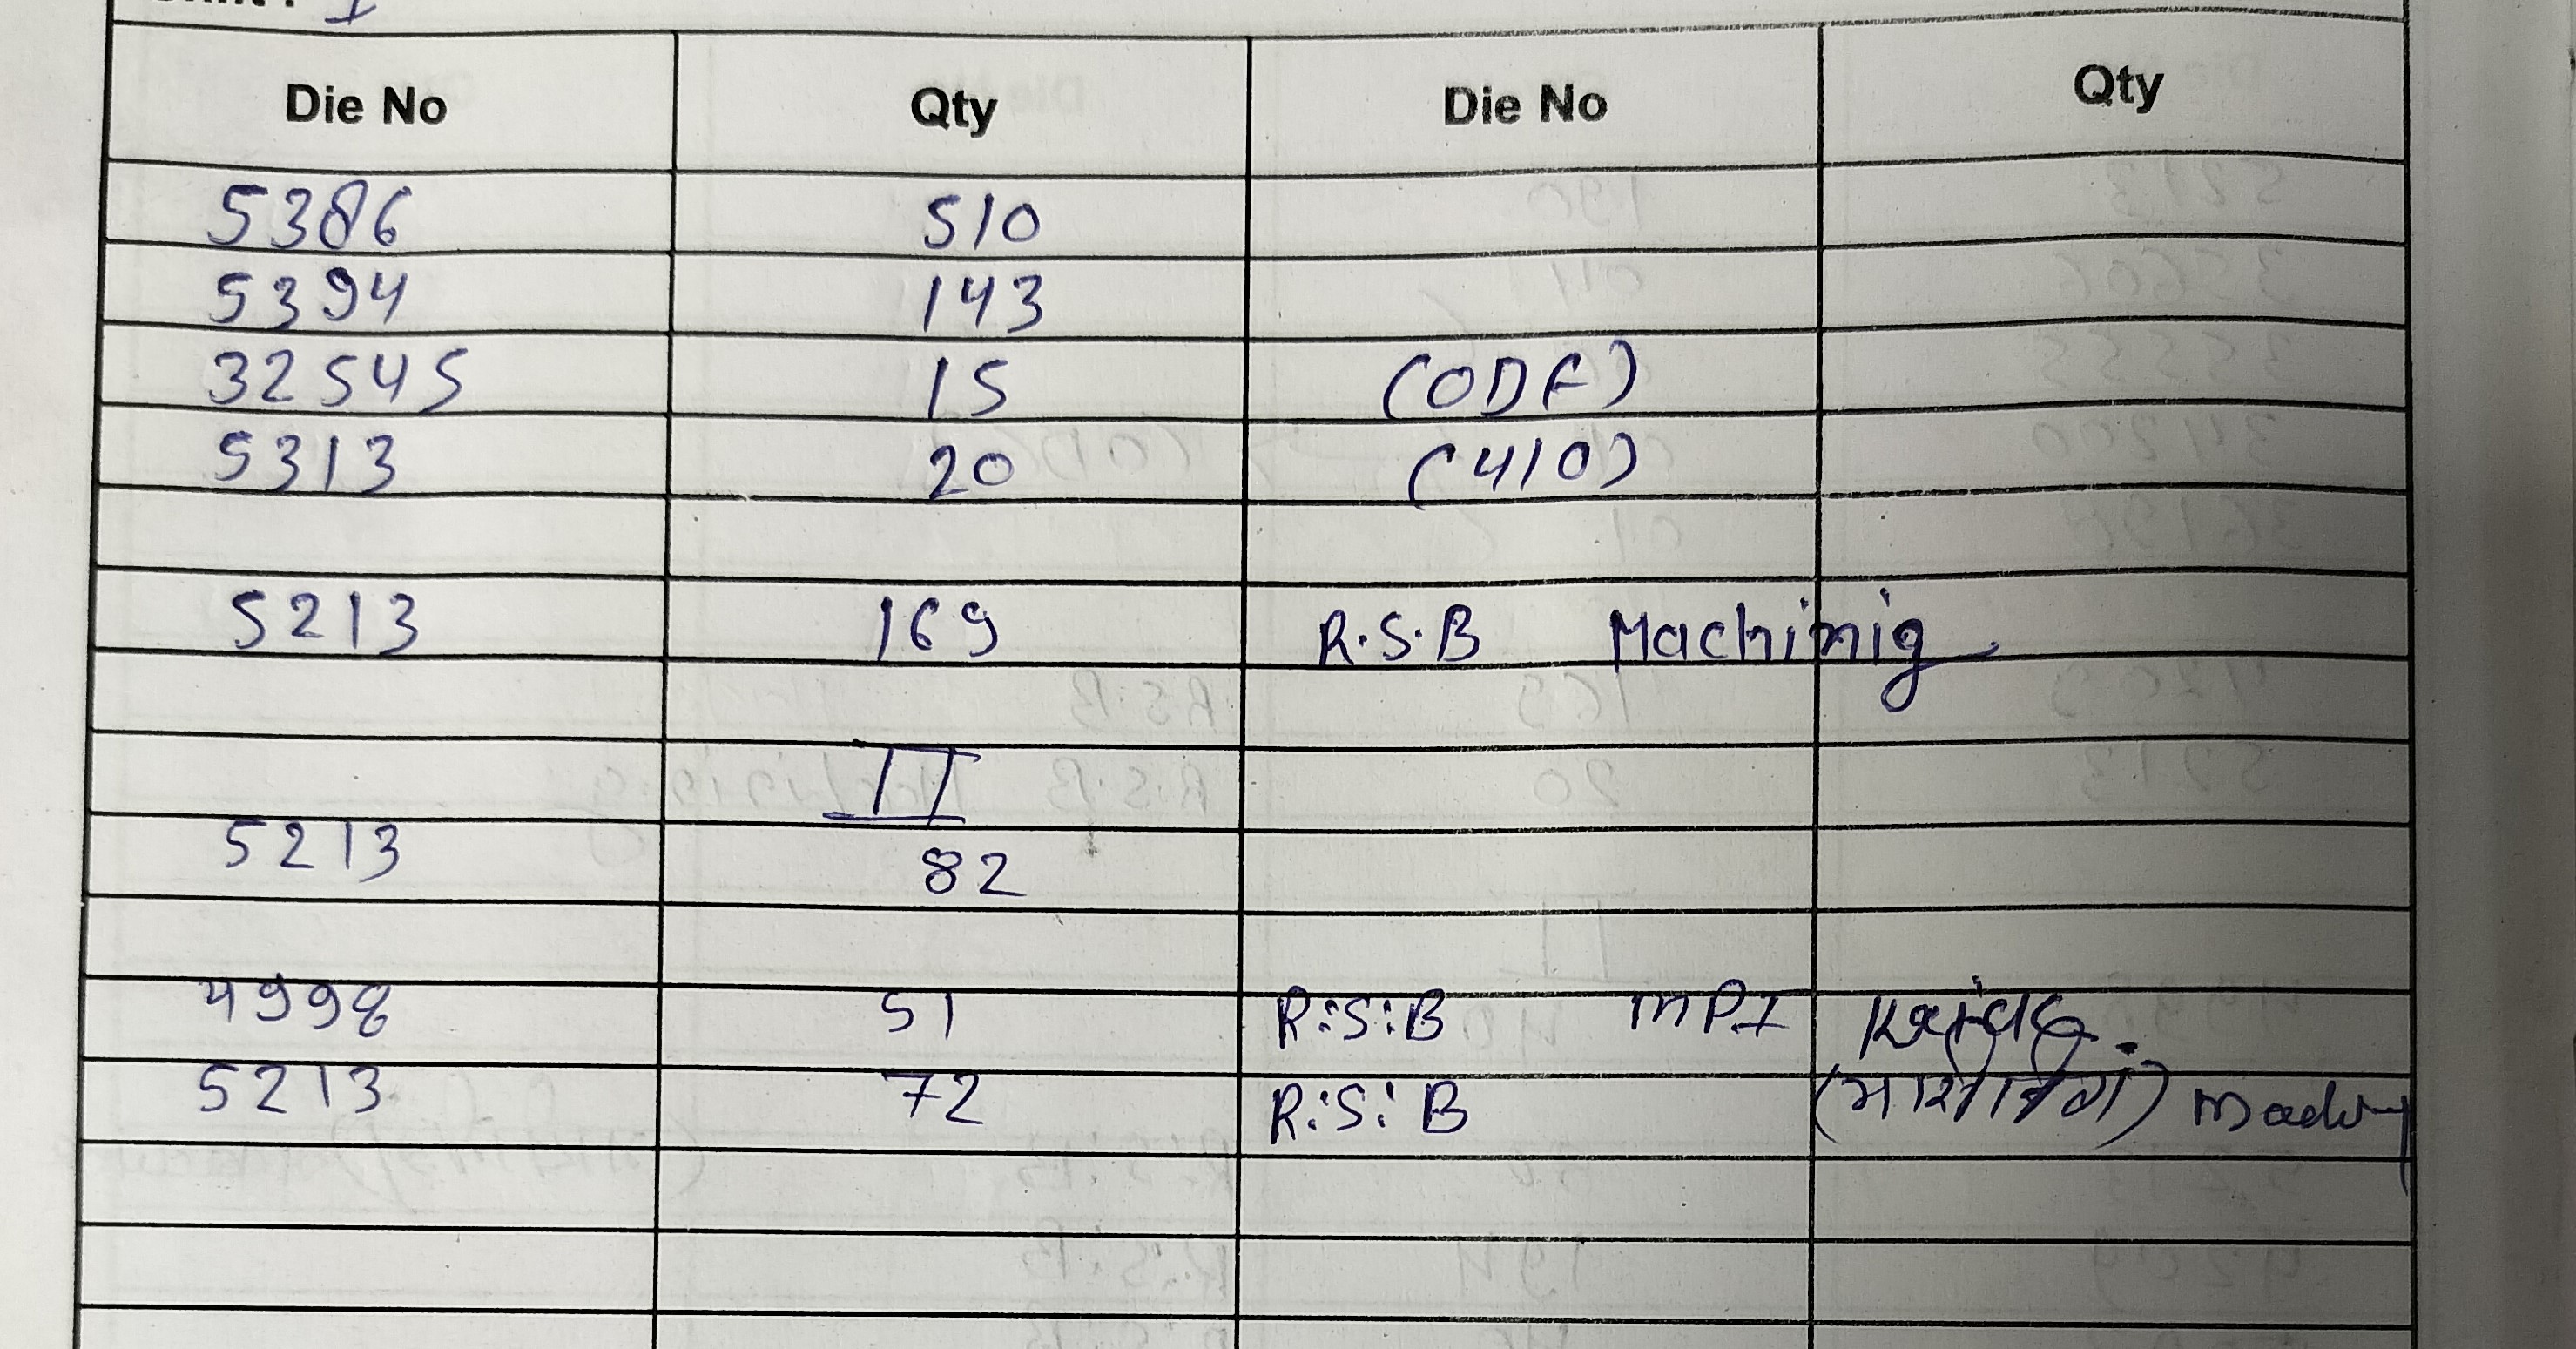 Shift : I
Die No Qty Die No Qty
5386 510
5394 143
32545 15 (ODF)
5313 20 (410)
5213 169 R.S.B Machinig
II
5213 82
4998 51 R:S:B MPI
5213 72 R:S:B